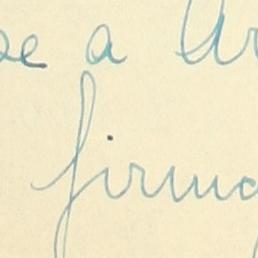 se a Ur
firma